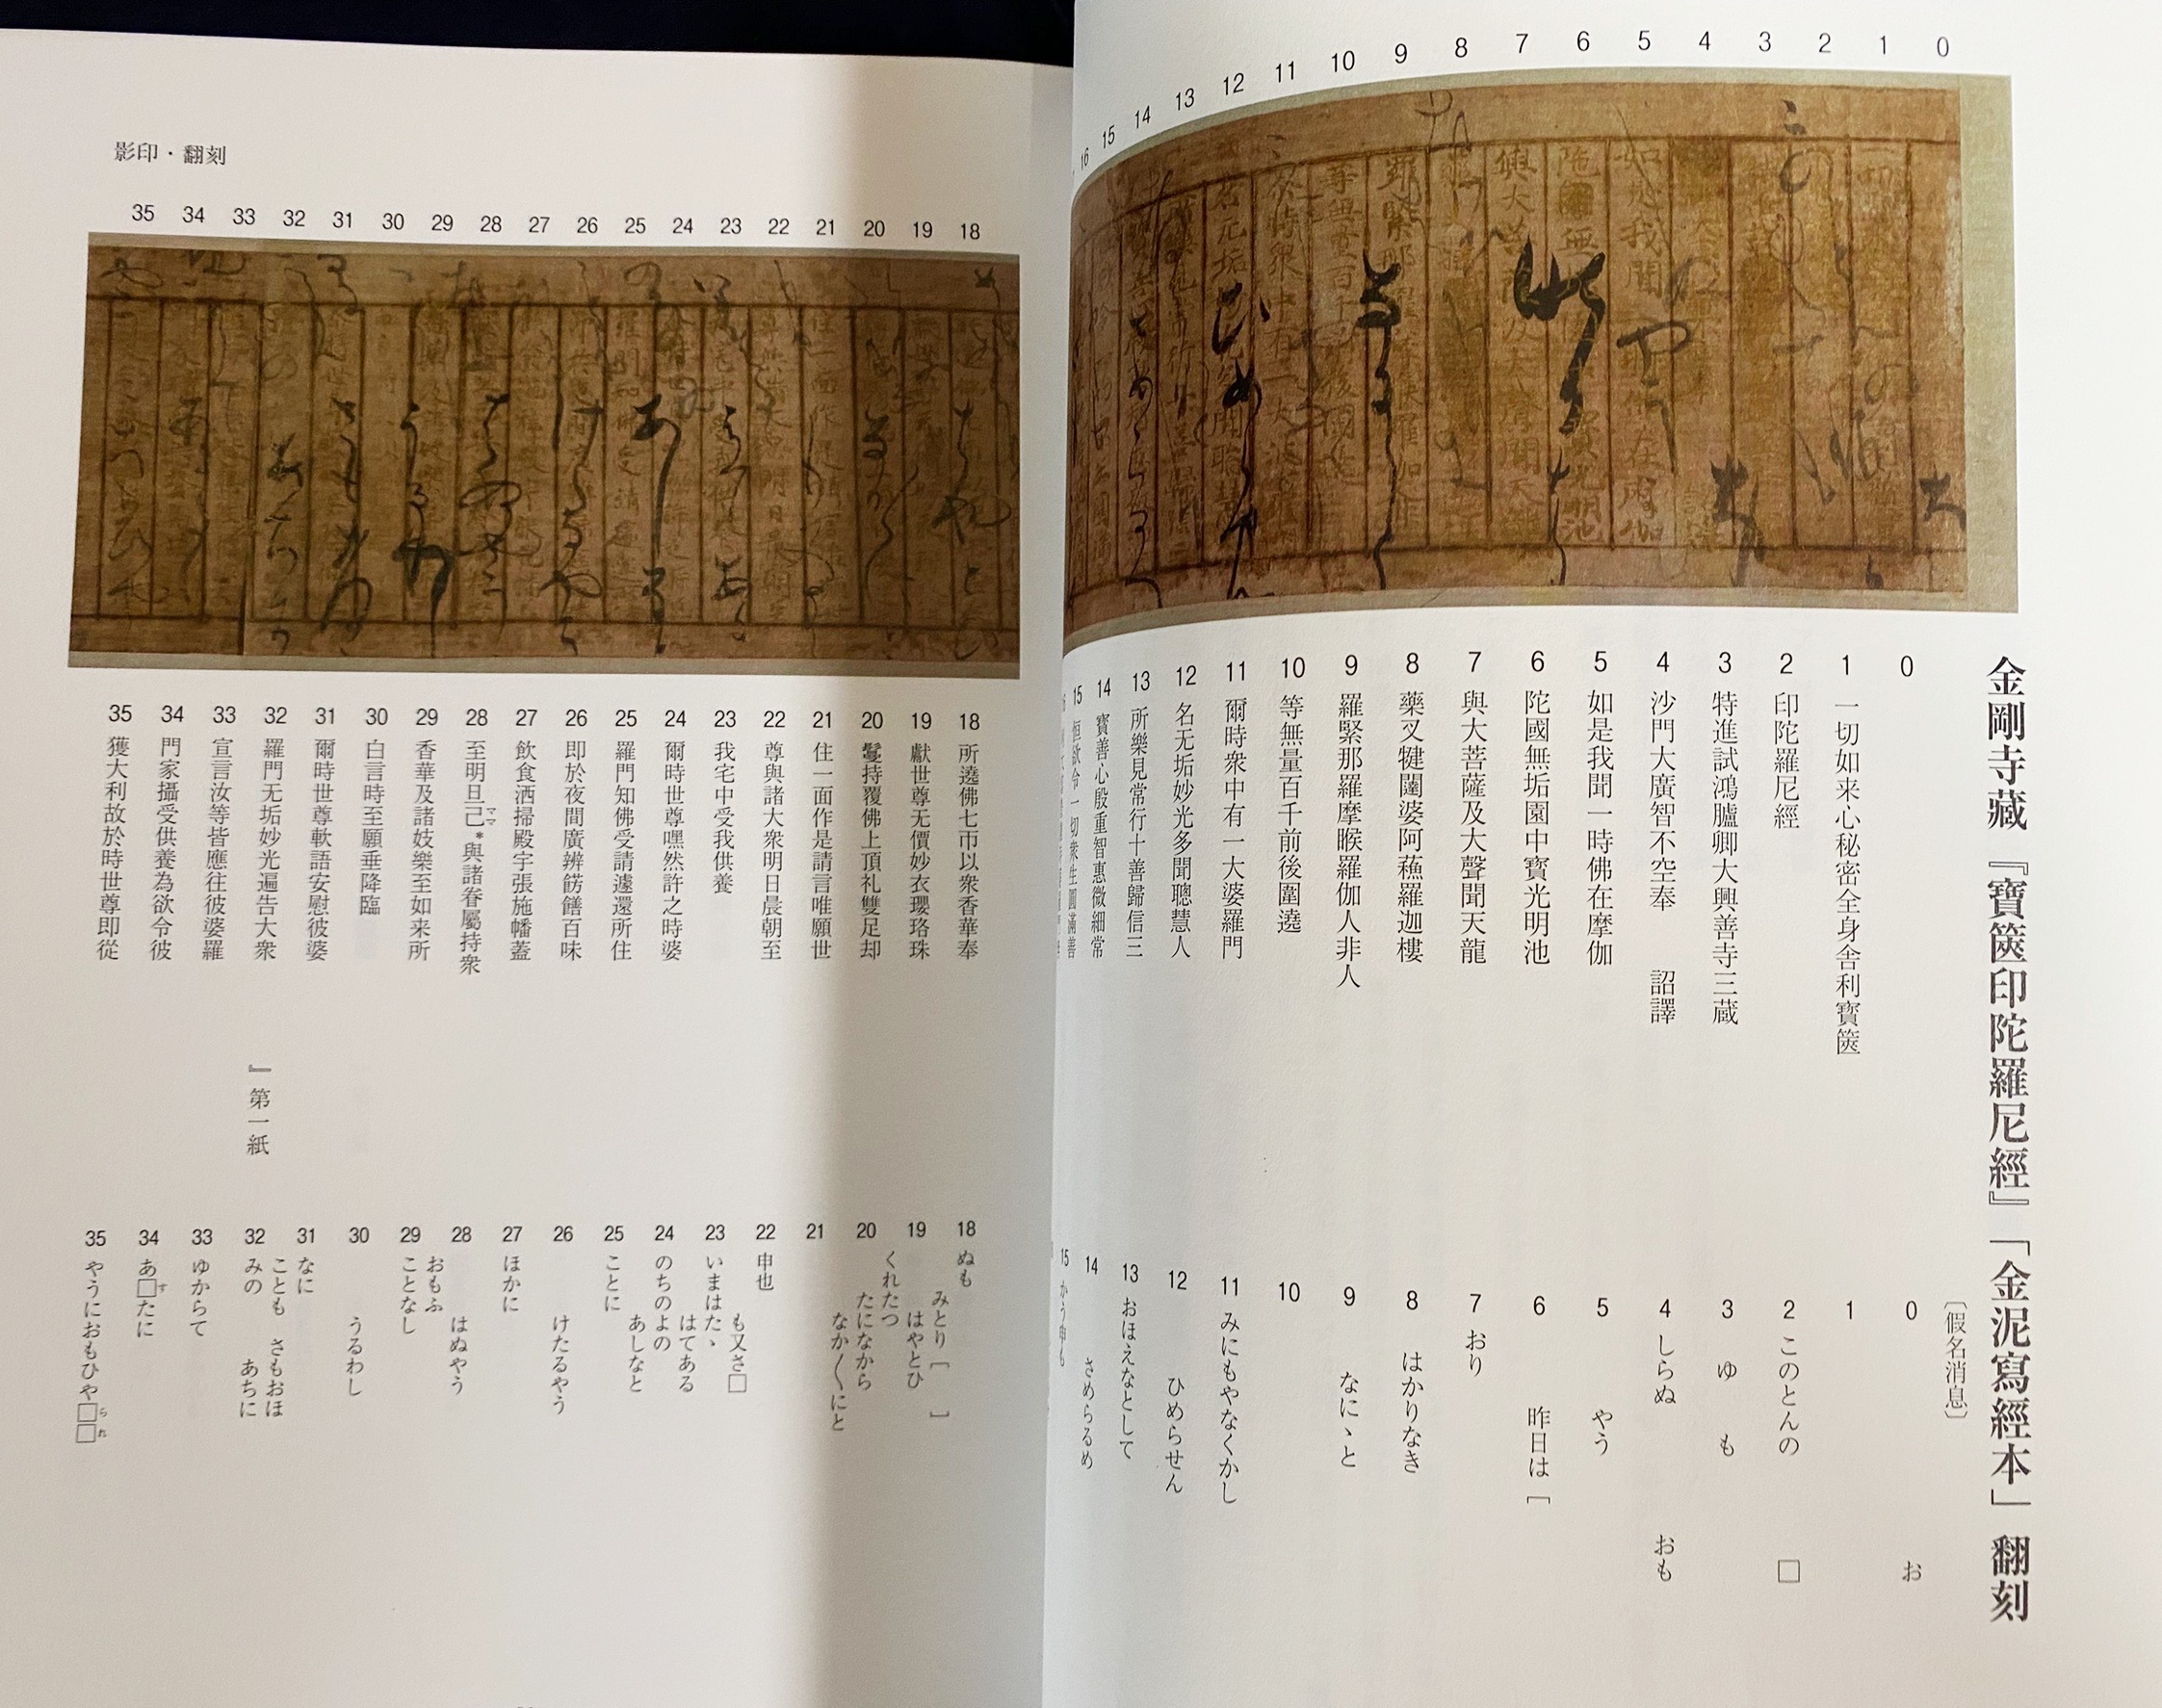 金剛寺藏『寶篋印陀羅尼經』「金泥寫經本」翻刻
0 1 2 3 4 5 6 7 8 9 10 11 12 13 14 15 16
0
1 一切如来心秘密全身舎利寶篋
2 印陀羅尼經
3 特進試鴻臚卿大興善寺三蔵
4 沙門大廣智不空奉 詔譯
5 如是我聞一時佛在摩伽
6 陀國無垢園中寶光明池
7 與大菩薩及大聲聞天龍
8 藥叉犍闥婆阿蘓羅迦樓
9 羅緊那羅摩睺羅伽人非人
10 等無量百千前後圍遶
11 爾時衆中有一大婆羅門
12 名无垢妙光多聞聰慧人
13 所樂見常行十善歸信三
14 寳善心殷重智惠微細常
15 恒欲令一切衆生圓滿善
〔假名消息〕
0 お
1
2 このとんの □
3 ゆ も
4 しらぬ おも
5 やう
6 昨日は［
7 おり
8 はかりなき
9 なにゝと
10
11 みにもやなくかし
12 ひめらせん
13 おほえなとして
14 さめらるめ
15 かう申も
影印・翻刻
18 19 20 21 22 23 24 25 26 27 28 29 30 31 32 33 34 35
18 所遶佛七帀以衆香華奉
19 獻世尊无價妙衣瓔珞珠
20 鬘持覆佛上頂礼雙足却
21 住一面作是請言唯願世
22 尊與諸大衆明日晨朝至
23 我宅中受我供養
24 爾時世尊嘿然許之時婆
25 羅門知佛受請遽還所住
26 即於夜間廣辨餝饍百味
27 飲食洒掃殿宇張施幡蓋
28 至明旦己ママ*與諸眷屬持衆
29 香華及諸妓樂至如来所
30 白言時至願垂降臨
31 爾時世尊軟語安慰彼婆
32 羅門无垢妙光遍告大衆
33 宣言汝等皆應往彼婆羅
』第一紙
34 門家攝受供養為欲令彼
35 獲大利故於時世尊即從
18 ぬも
みとり［ ］
19 はやとひ
くれたつ
20 たになから
なか〱にと
21
22 申也
も又さ□
23 いまはたゝ
はてある
24 のちのよの
あしなと
25 ことに
26 けたるやう
27 ほかに
28 はぬやう
おもふ
29 ことなし
30 うるわし
31 なに
こともさもおほ
32 みの あちに
33 ゆからて
34 あ□すたに
35 やうにおもひや□ら□れ